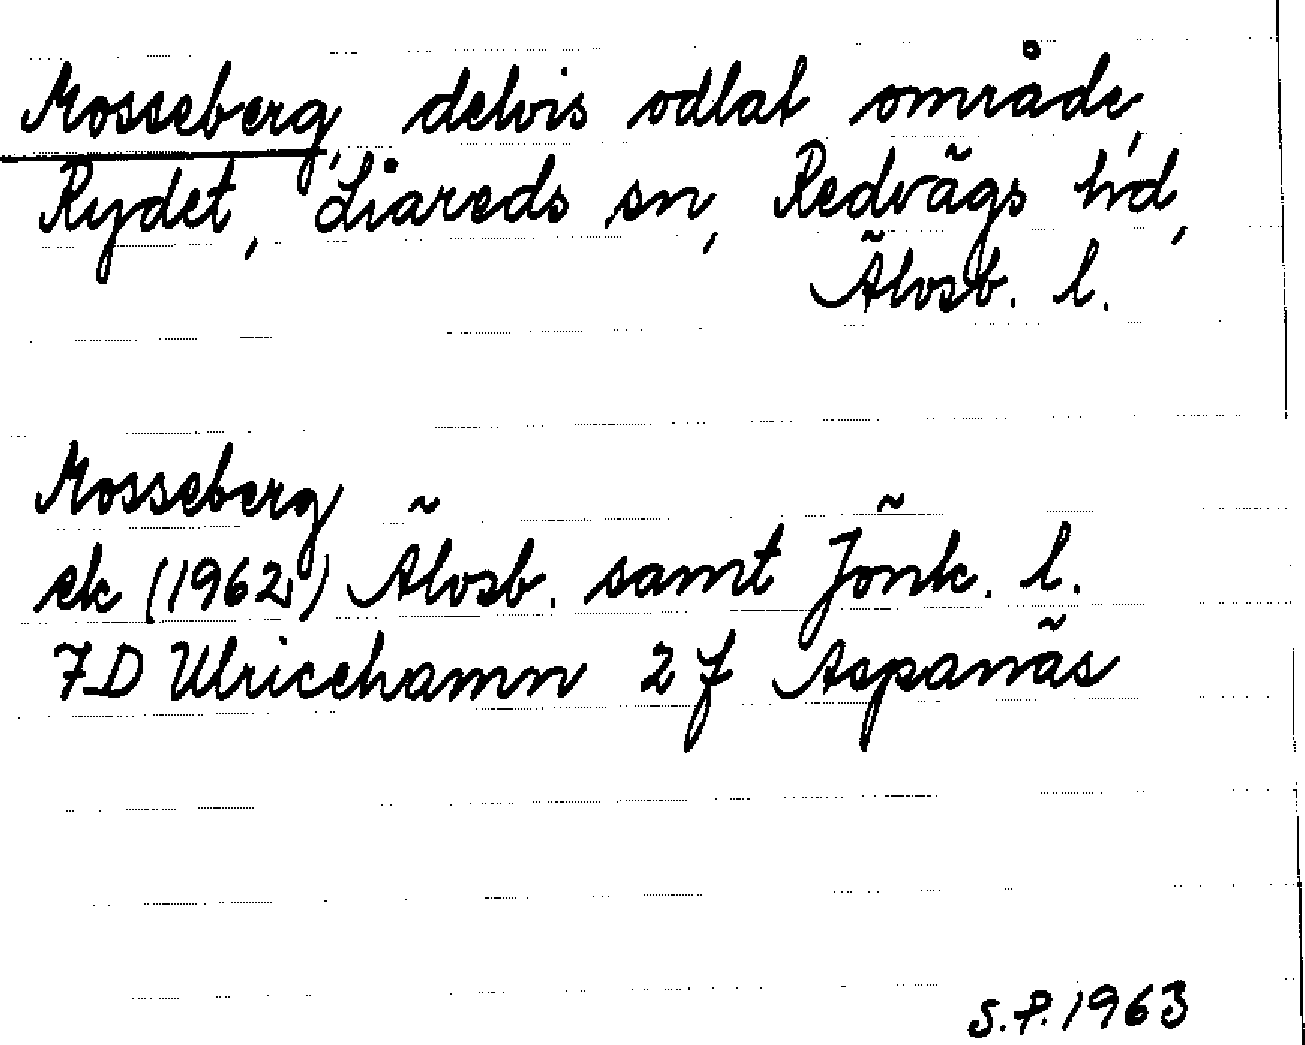 Mosseberg, delvis odlat område,
Rydet, Liareds sn, Redvägs hd,
Älvsb. l.
Mosseberg
ek (1962) Älvsb. samt Jönk. l.
7D Ulricehamn 2f Aspanäs
S.P. 1963